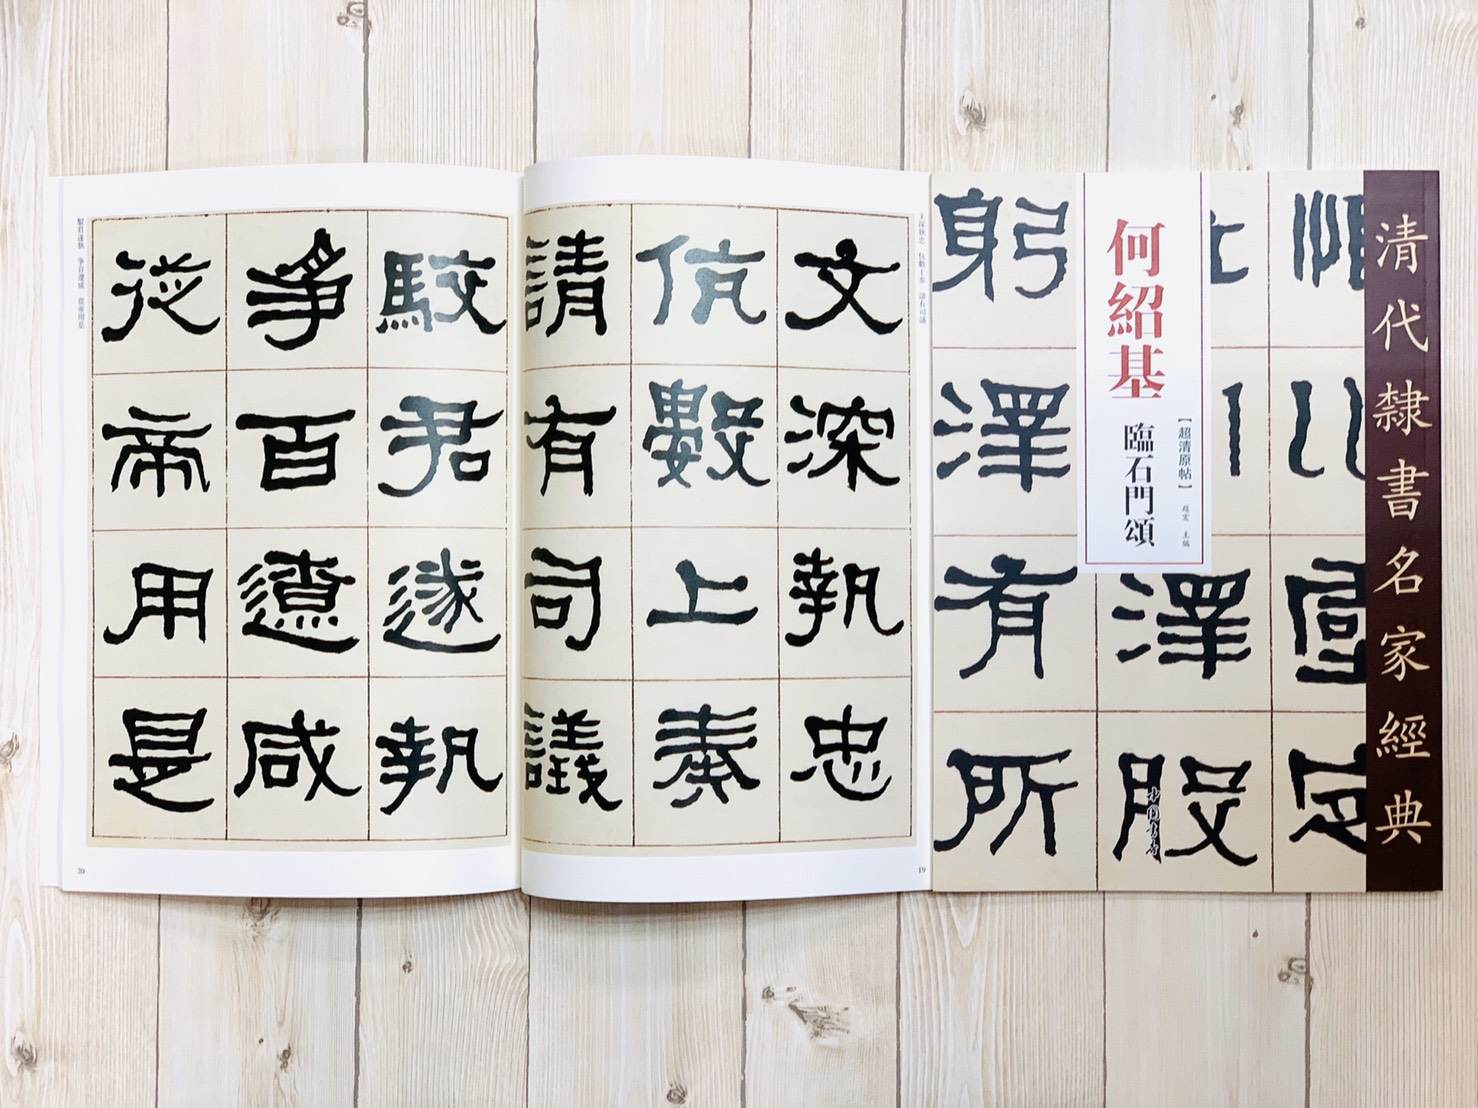 清代隸書名家經典
何紹基
臨石門頌
【超清原帖】
趙宏 主編
澤股
躬澤有所
文深執忠 伉數上奏 請有司議
文深執忠
伉數上奏
請有司議
19
駮君遂執
爭百遼咸
從帝用是
駁君遂執 爭百遼咸 從帝用是
20